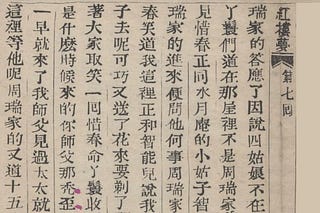 紅樓夢 第七囘
瑞家的答應了因說四姑娘不在
丫鬟們道在那屋裡不是周瑞家
見惜春正同水月庵的小姑子智
瑞家的進來便問他何事周瑞家
春笑道我這裡正和智能兒說我
子去呢可巧又送了花來要剃了
著大家取笑一囘惜春命丫鬟收
是什麼時候來的你師父那禿歪
一早就來了我師父見過太太就
這裡等他呢周瑞家的又道十五